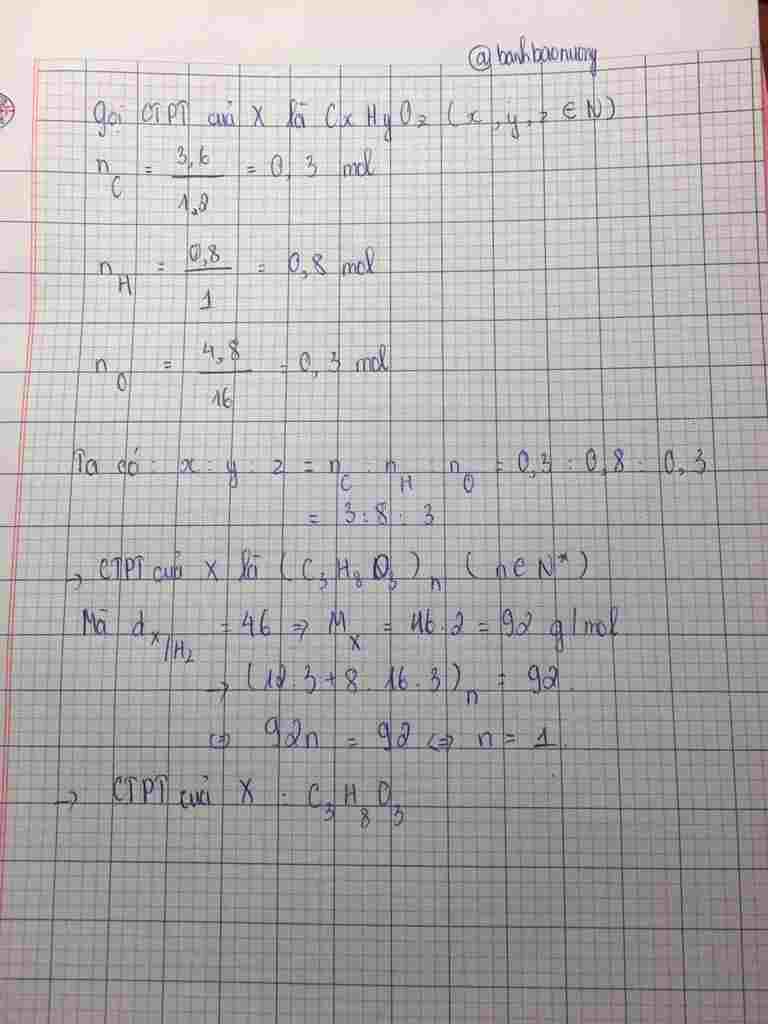 @banhbaonuong
Gọi CTPT của X là CxHyOz (x, y, z ∈ N)
n_C = 3,6/12 = 0,3 mol
n_H = 0,8/1 = 0,8 mol
n_O = 4,8/16 = 0,3 mol
Ta có: x : y : z = n_C : n_H : n_O = 0,3 : 0,8 : 0,3
= 3 : 8 : 3
→ CTPT của X là (C₃H₈O₃)ₙ (n ∈ N*)
Mà d_X/H₂ = 46 ⇒ M_X = 46.2 = 92 g/mol
→ (12.3 + 8.16.3)ₙ = 92
⇔ 92n = 92 ⇔ n = 1.
→ CTPT của X : C₃H₈O₃